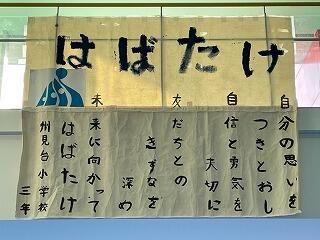 はばたけ
自分の思いを
つきとおし
自信と勇気を
大切に
友だちとの
きずなを
深め
未来に向かって
はばたけ
州見台小学校
三年